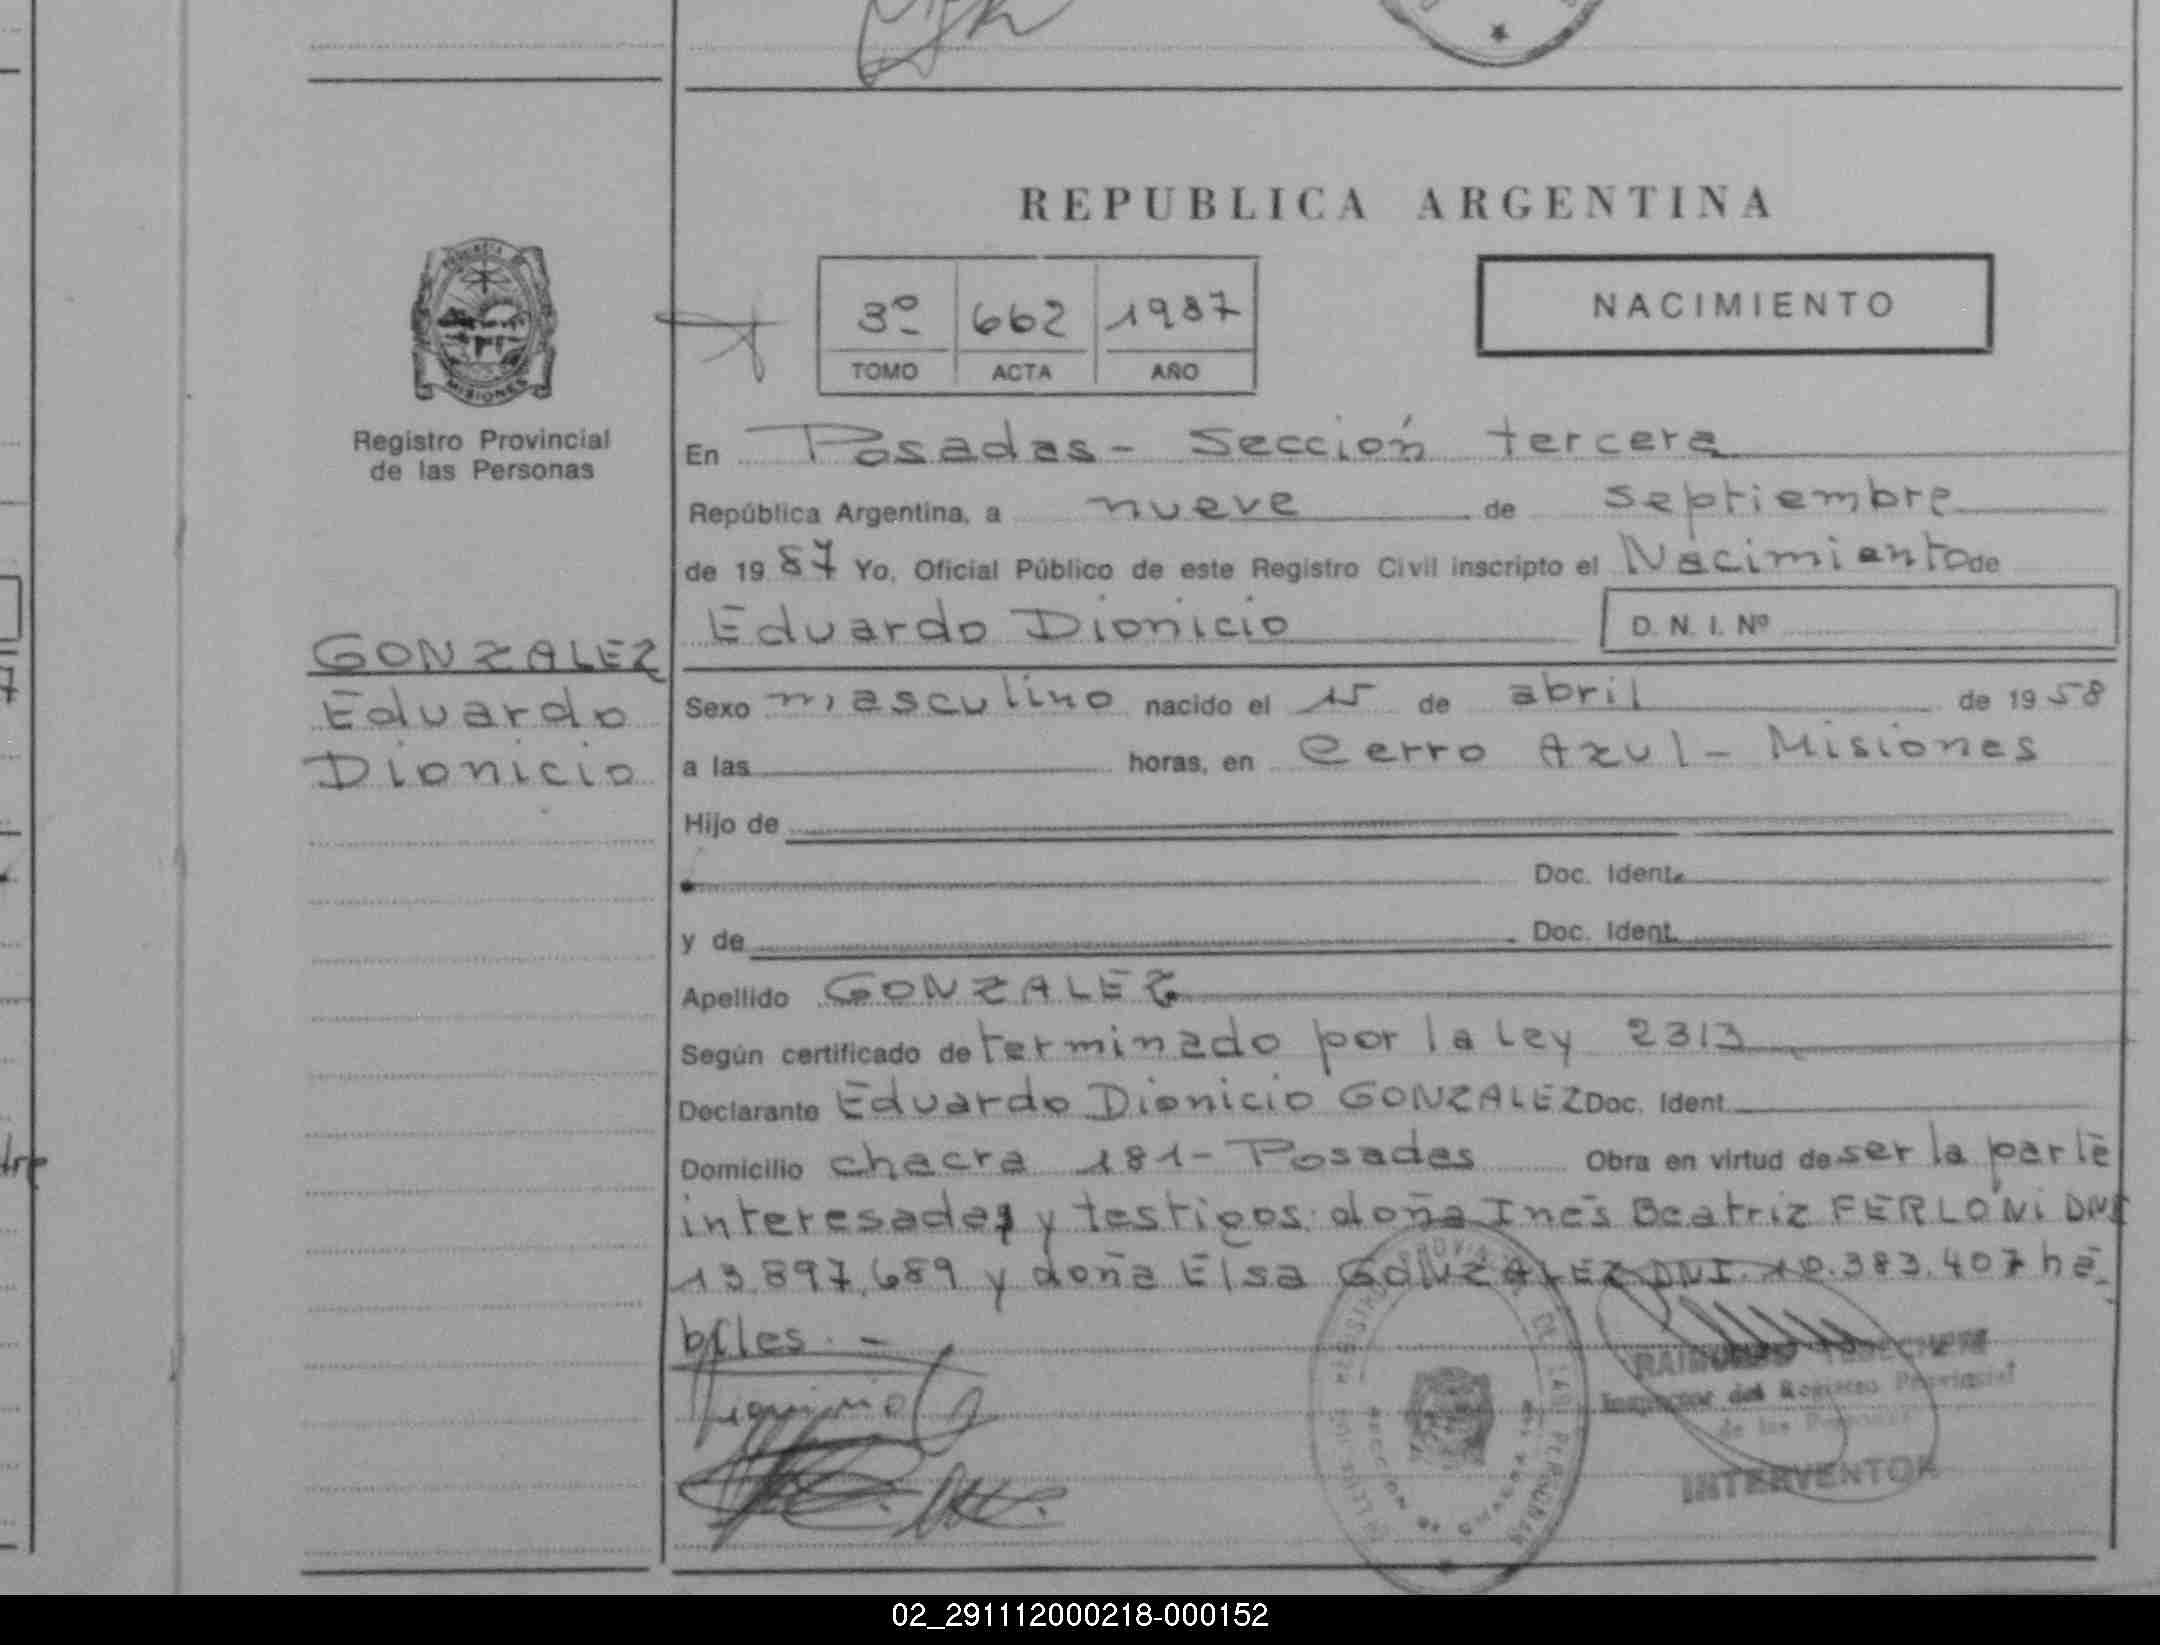 REPUBLICA ARGENTINA
3º 662 1987
TOMO ACTA AÑO
NACIMIENTO
MISIONES
Registro Provincial
de las Personas
GONZALEZ
Eduardo
Dionicio
En Posadas - Sección tercera
República Argentina, a nueve de septiembre
de 1987 Yo, Oficial Público de este Registro Civil inscripto el Nacimiento de
Eduardo Dionicio D. N. I. Nº
Sexo masculino nacido el 15 de abril de 1958
a las horas, en Cerro Azul - Misiones
Hijo de
Doc. Ident.
y de Doc. Ident.
Apellido GONZALEZ
Según certificado determinado por la Ley 2313
Declarante Eduardo Dionicio GONZALEZ Doc. Ident.
Domicilio chacra 181 - Posadas Obra en virtud de ser la parte
interesada y testigos: doña Inés Beatriz FERLONI DNI
13.897.689 y doña Elsa GONZALEZ DNI. 10.383.407 há
biles. -
Inspector del Registro Provincial
de las Personas
INTERVENTOR
02_291112000218-000152